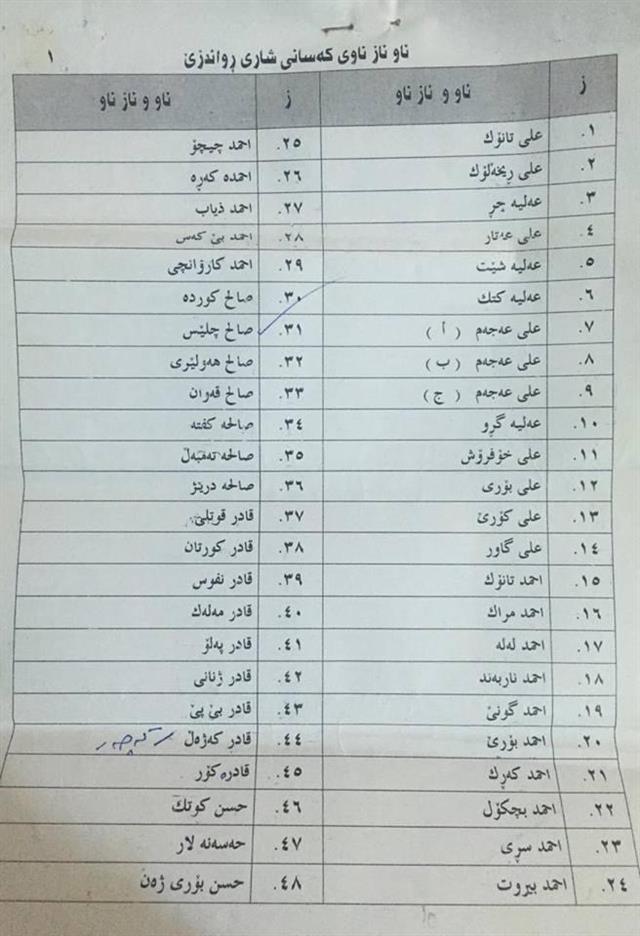 ناو ناز ناوى كەسانى شارى ڕواندزێ
١
ز ناو و ناز ناو ز ناو و ناز ناو
١. على تانۆك ٢٥. احمد چيچۆ
٢. على ڕيخەلۆك ٢٦. احمدە كەڕە
٣. عەليە چڕ ٢٧. احمد ذياب
٤. على عەتار ٢٨. احمد بێ كەس
٥. عەليە شێت ٢٩. احمد كاروانچى
٦. عەليە كتك ٣٠. صالح كوردە
٧. على عەجەم ( أ ) ٣١. صالح چلێس
٨. على عەجەم ( ب ) ٣٢. صالح هەولێرى
٩. على عەجەم ( ج ) ٣٣. صالح قەوان
١٠. عەليە گڕو ٣٤. صالحە كفتە
١١. على خۆفرۆش ٣٥. صالحە تەمبەڵ
١٢. على بۆرى ٣٦. صالحە درێژ
١٣. على كۆرێ ٣٧. قادر قوتلێ
١٤. على گاور ٣٨. قادر كورتان
١٥. احمد تانۆك ٣٩. قادر نفوس
١٦. احمد مراك ٤٠. قادر مەلەك
١٧. احمد لەلە ٤١. قادر پەلۆ
١٨. احمد ناربەند ٤٢. قادر ژنانى
١٩. احمد گونێ ٤٣. قادر بێ پێ
٢٠. احمد بۆرێ ٤٤. قادر كەژەڵ
٢١. احمد كەڕك ٤٥. قادرە كۆر
٢٢. احمد بچكۆل ٤٦. حسن كوتك
٢٣. احمد سڕى ٤٧. حەسەنە لار
٢٤. احمد بيروت ٤٨. حسن بۆرى ژەن